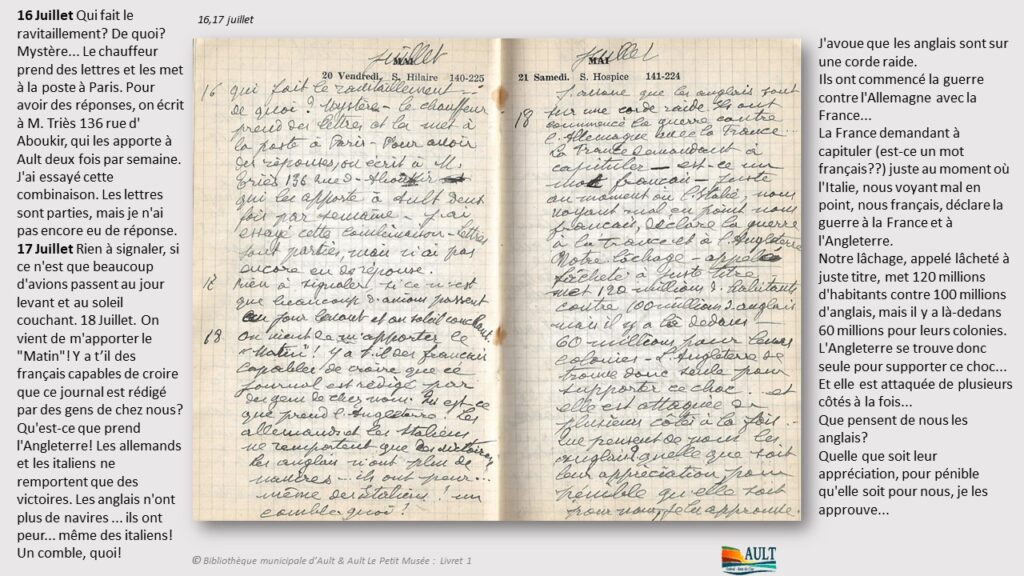 16 Juillet Qui fait le
ravitaillement? De quoi?
Mystère... Le chauffeur
prend des lettres et les met
à la poste à Paris. Pour
avoir des réponses, on écrit
à M. Triès 136 rue d'
Aboukir, qui les apporte à
Ault deux fois par semaine.
J'ai essayé cette
combinaison. Les lettres
sont parties, mais je n'ai
pas encore eu de réponse.
17 Juillet Rien à signaler, si
ce n'est que beaucoup
d'avions passent au jour
levant et au soleil
couchant. 18 Juillet. On
vient de m'apporter le
"Matin"! Y a t'il des
français capables de croire
que ce journal est rédigé
par des gens de chez nous?
Qu'est-ce que prend
l'Angleterre! Les allemands
et les italiens ne
remportent que des
victoires. Les anglais n'ont
plus de navires ... ils ont
peur... même des italiens!
Un comble, quoi!
16,17 juillet
juillet
MAI
20 Vendredi. S. Hilaire 140-225
16 qui fait le ravitaillement
de quoi? Mystère - le chauffeur
prend des lettres et les met à
la poste à Paris - Pour avoir
des réponses, on écrit à M.
Triès 136 rue d'Aboukir
qui les apporte à Ault deux
fois par semaine - J'ai
essayé cette combinaison - lettres
sont parties, mais n'ai pas
encore eu de réponse.
Rien à signaler si ce n'est
que beaucoup d'avions passent
au jour levant et au soleil couchant.
18 On vient de m'apporter le
"Matin"! Y a t'il des français
capables de croire que ce
journal est rédigé par
des gens de chez nous? Qu'est-ce
que prend l'Angleterre! Les
allemands et les italiens
ne remportent que des victoires
les anglais n'ont plus de
navires... ils ont peur...
même des italiens! un
comble quoi!
juillet
MAI
21 Samedi. S. Hospice 141-224
J'avoue que les anglais sont
18 sur une corde raide. Ils ont
commencé la guerre contre
l'Allemagne avec la France
La France demandant à
capituler - est-ce un
mot français - juste
au moment où l'Italie, nous
voyant mal en point, nous
français, déclare la guerre
à la France et à l'Angleterre
Notre lâchage - appelé
lâcheté à juste titre
met 120 millions d'habitants
contre 100 millions d'anglais
mais il y a là dedans
60 millions pour leurs
colonies - l'Angleterre se
trouve donc seule pour
supporter ce choc... et
elle est attaquée de
plusieurs côtés à la fois...
Que pensent de nous les
anglais? quelle que soit
leur appréciation, pour
pénible qu'elle soit
pour nous, je les approuve.
J'avoue que les anglais sont sur
une corde raide.
Ils ont commencé la guerre
contre l'Allemagne avec la
France...
La France demandant à
capituler (est-ce un mot
français??) juste au moment où
l'Italie, nous voyant mal en
point, nous français, déclare la
guerre à la France et à
l'Angleterre.
Notre lâchage, appelé lâcheté à
juste titre, met 120 millions
d'habitants contre 100 millions
d'anglais, mais il y a là-dedans
60 millions pour leurs colonies.
L'Angleterre se trouve donc
seule pour supporter ce choc...
Et elle est attaquée de plusieurs
côtés à la fois...
Que pensent de nous les
anglais?
Quelle que soit leur
appréciation, pour pénible
qu'elle soit pour nous, je les
approuve...
© Bibliothèque municipale d'Ault & Ault Le Petit Musée : Livret 1
AULT